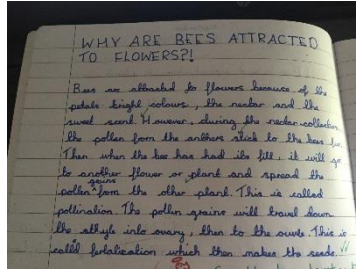 WHY ARE BEES ATTRACTED
TO FLOWERS?!
Bees are attracted to flowers because of the
petals bright colours, the nectar and the
sweet scent. However, during the nectar collection
the pollen from the anthers stick to the bees fur.
Then when the bee has had its fill, it will go
to another flower or plant and spread the
grains
pollen from the other plant. This is called
pollination. The pollen grains will travel down
the sthyle into ovary, then to the ovule. This is
called fertalication which then makes the seeds.